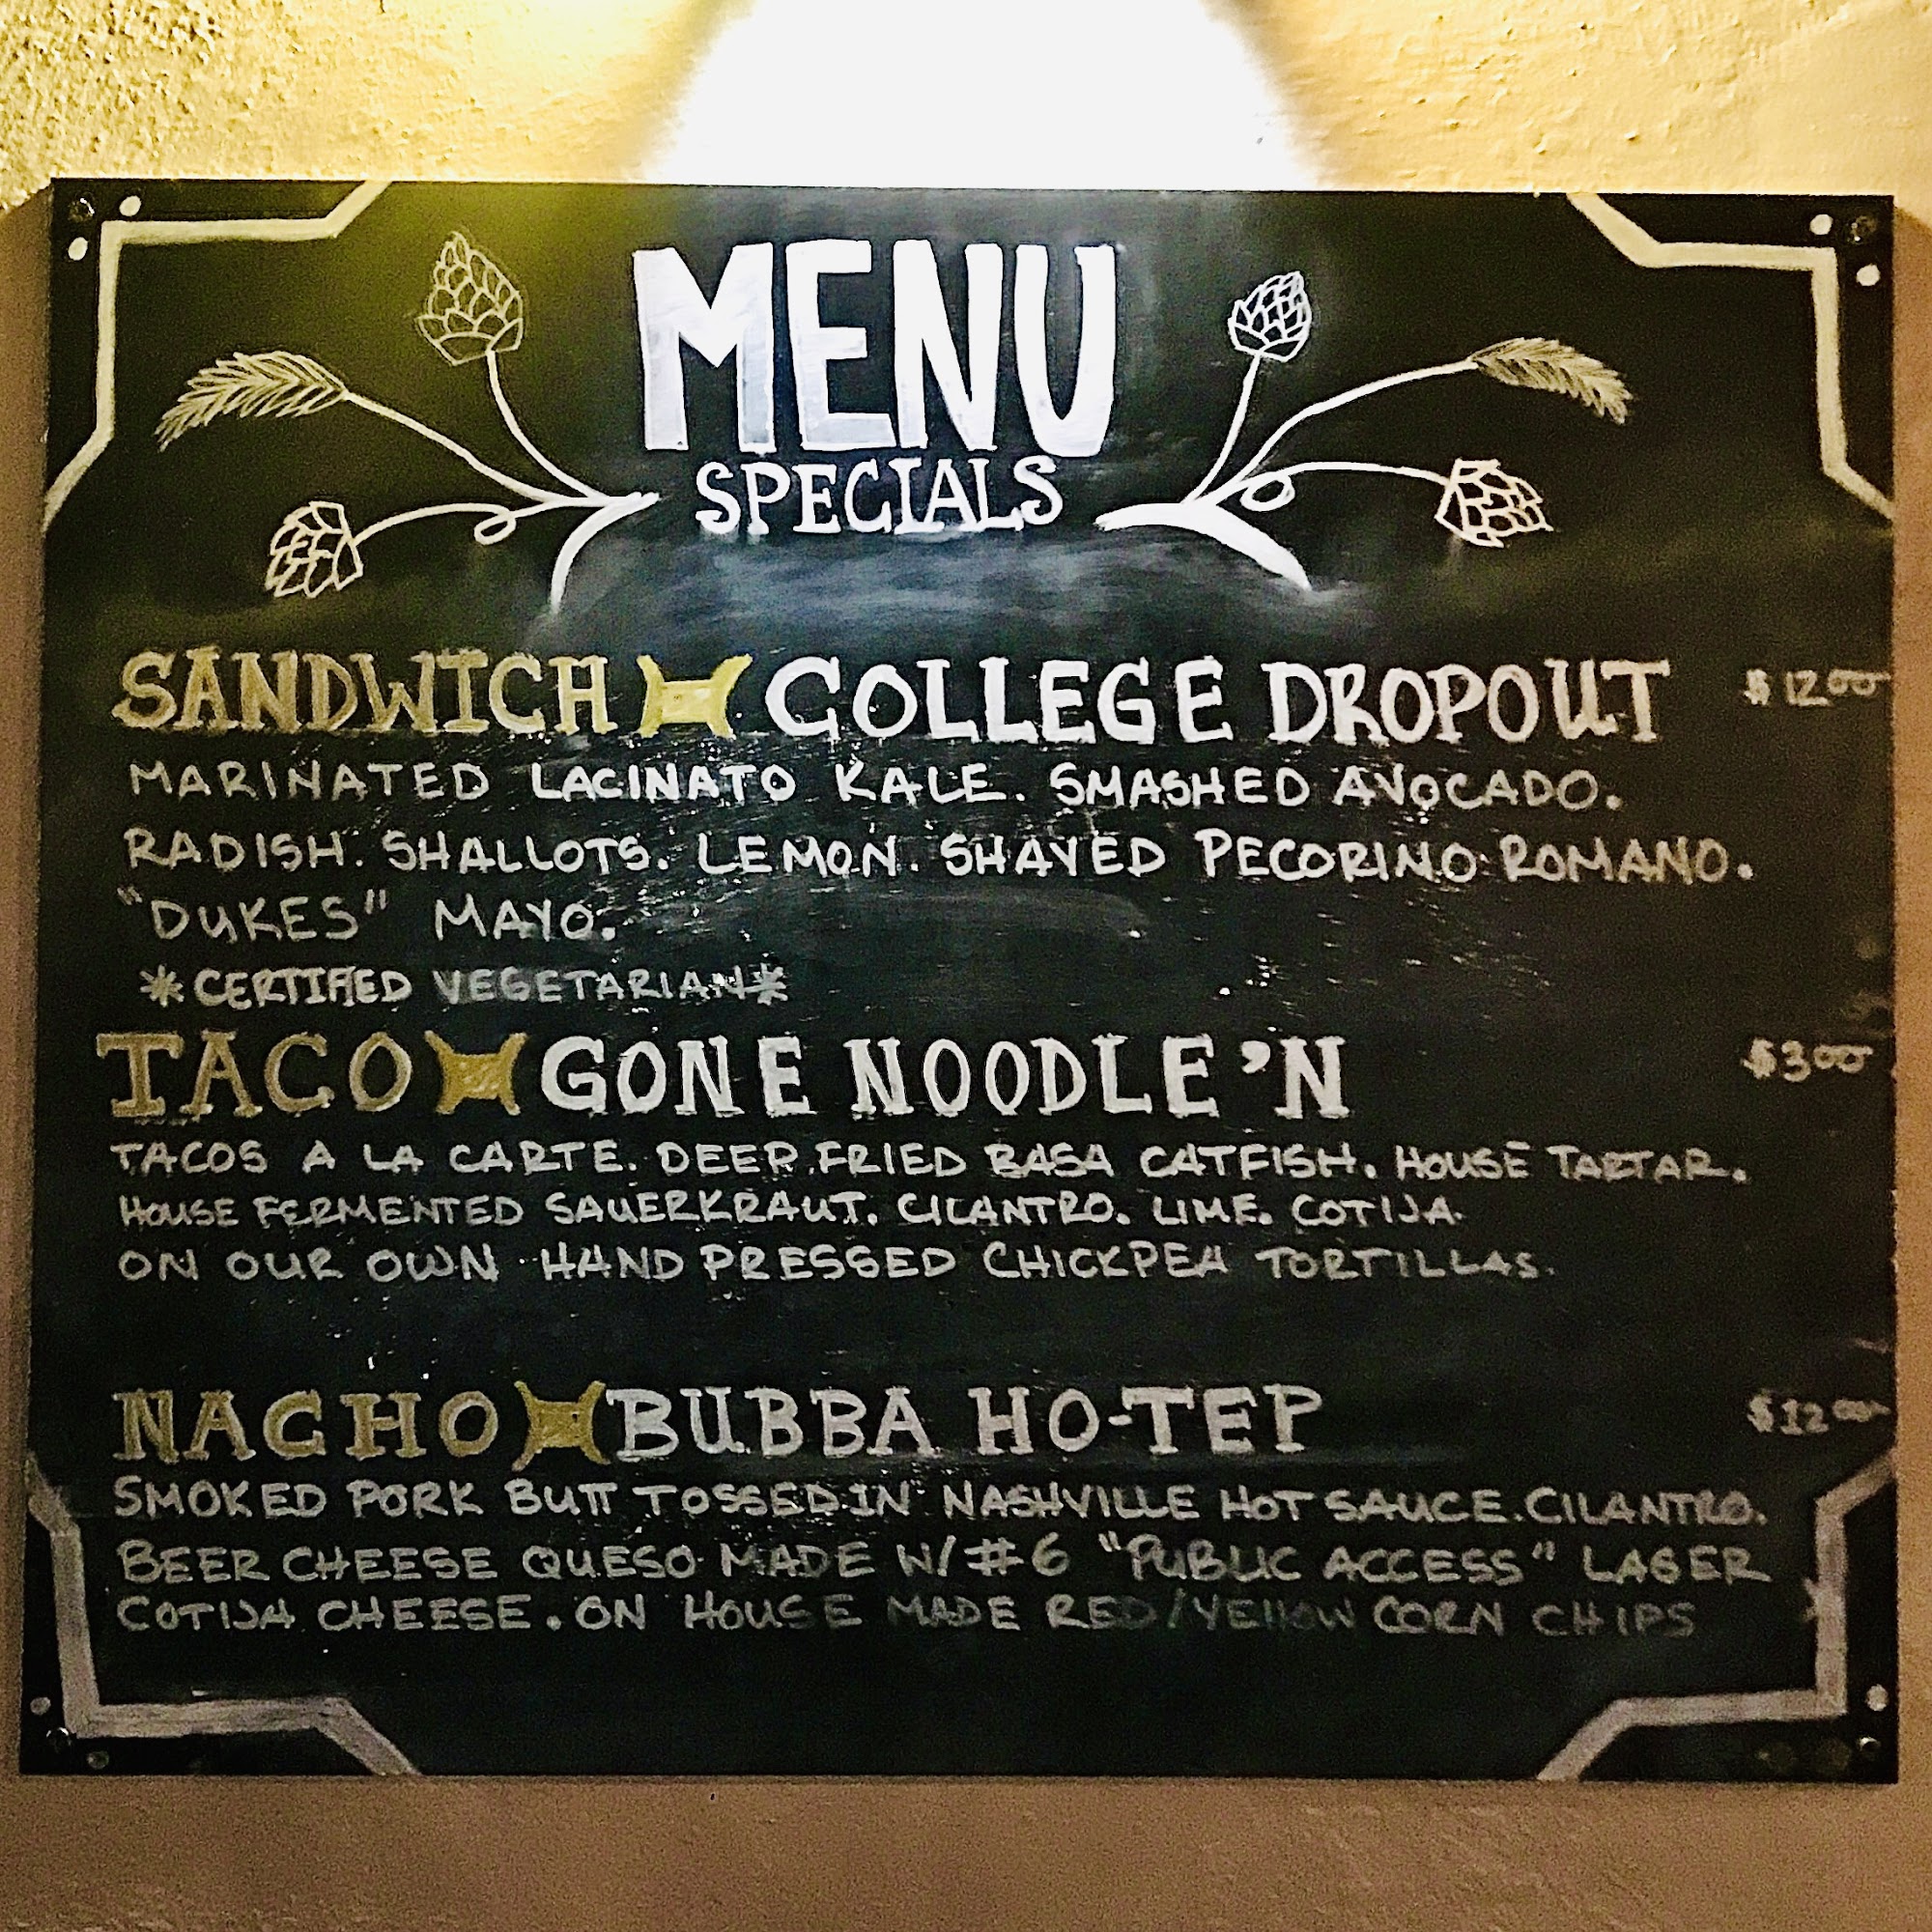 MENU
SPECIALS
SANDWICH COLLEGE DROPOUT $12.00
MARINATED LACINATO KALE. SMASHED AVOCADO.
RADISH. SHALLOTS. LEMON. SHAVED PECORINO ROMANO.
"DUKES" MAYO.
*CERTIFIED VEGETARIAN*
TACO GONE NOODLE'N $3.00
TACOS A LA CARTE. DEEP FRIED BASA CATFISH. HOUSE TARTAR.
HOUSE FERMENTED SAUERKRAUT. CILANTRO. LIME. COTIJA.
ON OUR OWN HAND PRESSED CHICKPEA TORTILLAS.
NACHO BUBBA HO-TEP $12.00
SMOKED PORK BUTT TOSSED IN NASHVILLE HOT SAUCE. CILANTRO.
BEER CHEESE QUESO MADE W/ #6 "PUBLIC ACCESS" LAGER
COTIJA CHEESE. ON HOUSE MADE RED/YELLOW CORN CHIPS